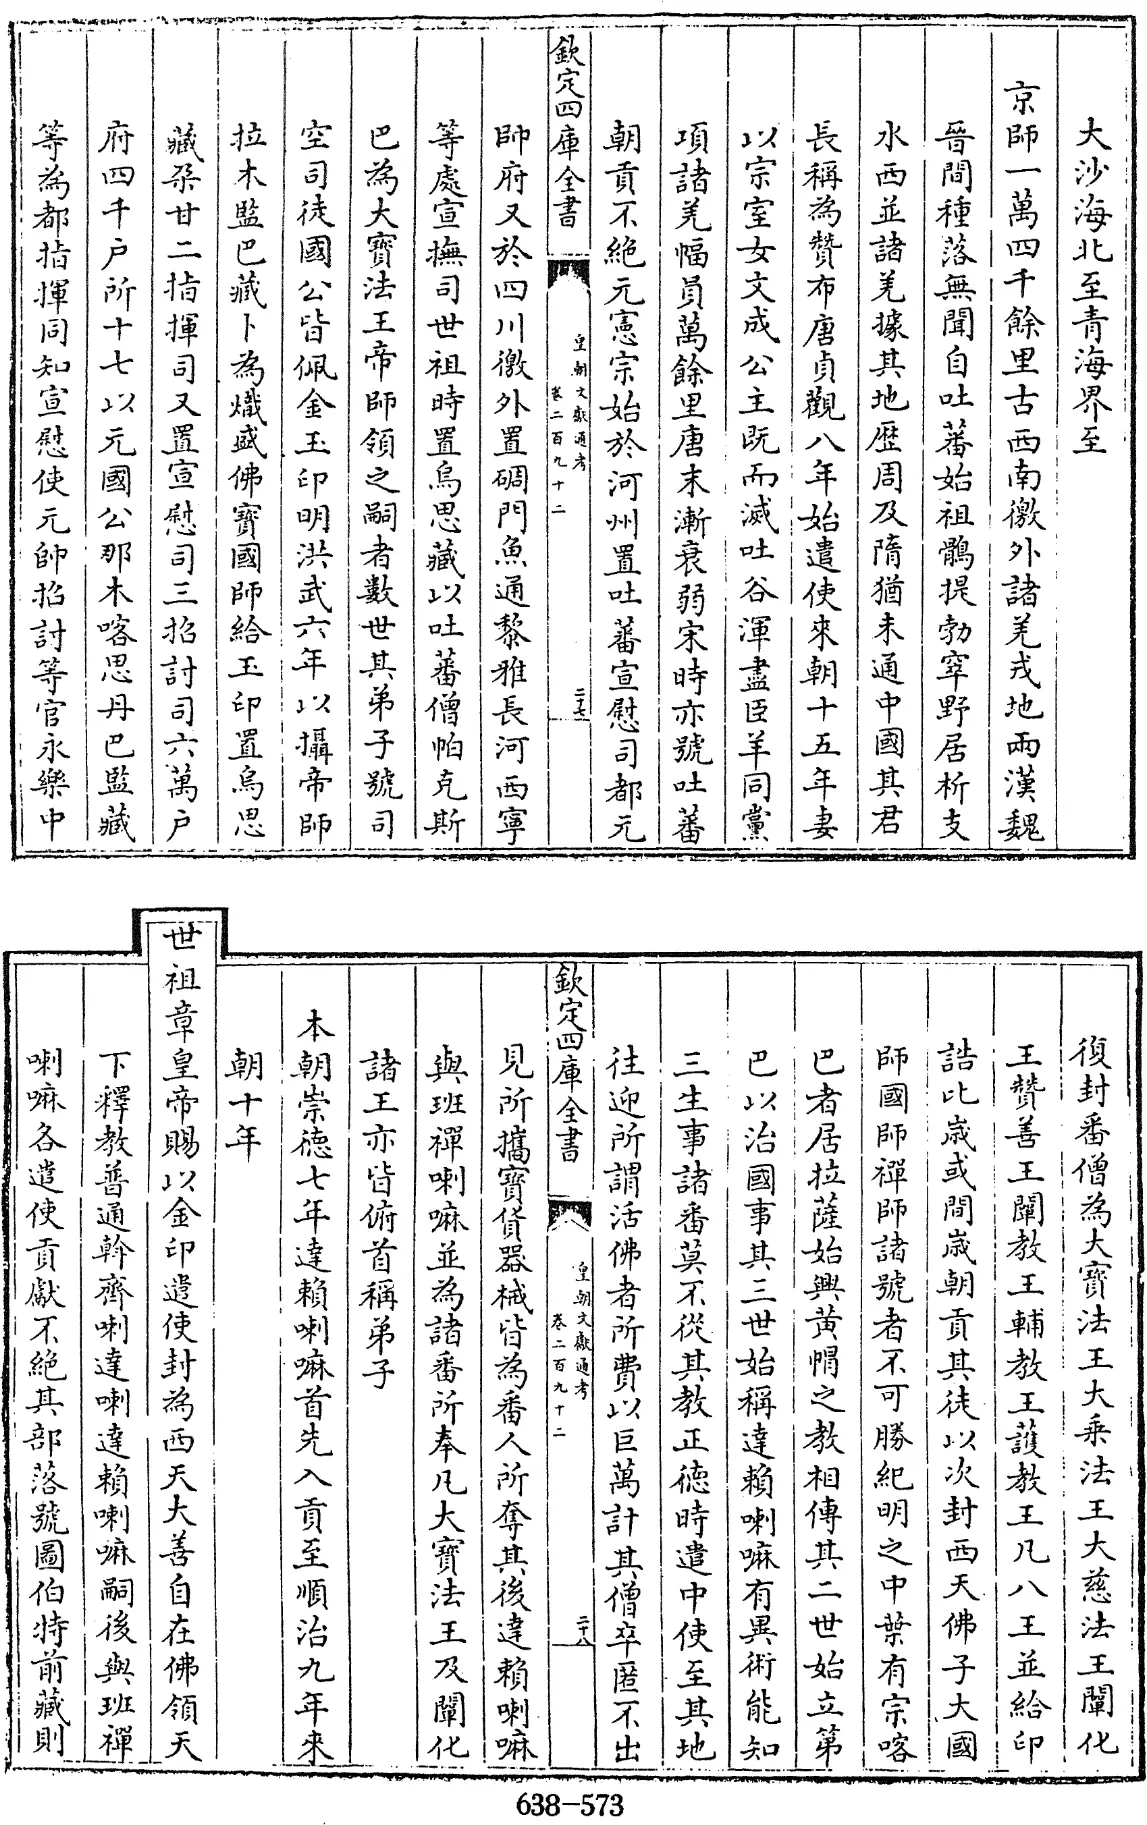 大沙海北至青海界至
京師一萬四千餘里古西南徼外諸羌戎地兩漢魏
晉間種落無聞自吐蕃始祖鶻提勃窣野居析支
水西並諸羌據其地歷周及隋猶未通中國其君
長稱為贊布唐貞觀八年始遣使來朝十五年妻
以宗室女文成公主既而滅吐谷渾盡臣羊同黨
項諸羌幅員萬餘里唐末漸衰弱宋時亦號吐蕃
朝貢不絕元憲宗始於河州置吐蕃宣慰司都元
欽定四庫全書
皇朝文獻通考
卷二百九十二
二十七
帥府又於四川徼外置碉門魚通黎雅長河西寧
等處宣撫司世祖時置烏思藏以吐蕃僧帕克斯
巴為大寶法王帝師領之嗣者數世其弟子號司
空司徒國公皆佩金玉印明洪武六年以攝帝師
拉木監巴藏卜為熾盛佛寶國師給玉印置烏思
藏朶甘二指揮司又置宣慰司三招討司六萬戶
府四千戶所十七以元國公那木喀思丹巴監藏
等為都指揮同知宣慰使元帥招討等官永樂中
復封番僧為大寶法王大乗法王大慈法王闡化
王贊善王闡教王輔教王護教王凡八王並給印
誥比歲或間歲朝貢其徒以次封西天佛子大國
師國師禪師諸號者不可勝紀明之中葉有宗喀
巴者居拉薩始興黃帽之教相傳其二世始立第
巴以治國事其三世始稱達賴喇嘛有異術能知
三生事諸番莫不從其教正德時遣中使至其地
往迎所謂活佛者所費以巨萬計其僧卒匿不出
欽定四庫全書
皇朝文獻通考
卷二百九十二
二十八
見所攜寶貨器械皆為番人所奪其後達賴喇嘛
與班禪喇嘛並為諸番所奉凡大寶法王及闡化
諸王亦皆俯首稱弟子
本朝崇德七年達賴喇嘛首先入貢至順治九年來
朝十年
世祖章皇帝賜以金印遣使封為西天大善自在佛領天
下釋教普通斡齊喇達喇達賴喇嘛嗣後與班禪
喇嘛各遣使貢獻不絕其部落號圖伯特前藏則
638-573